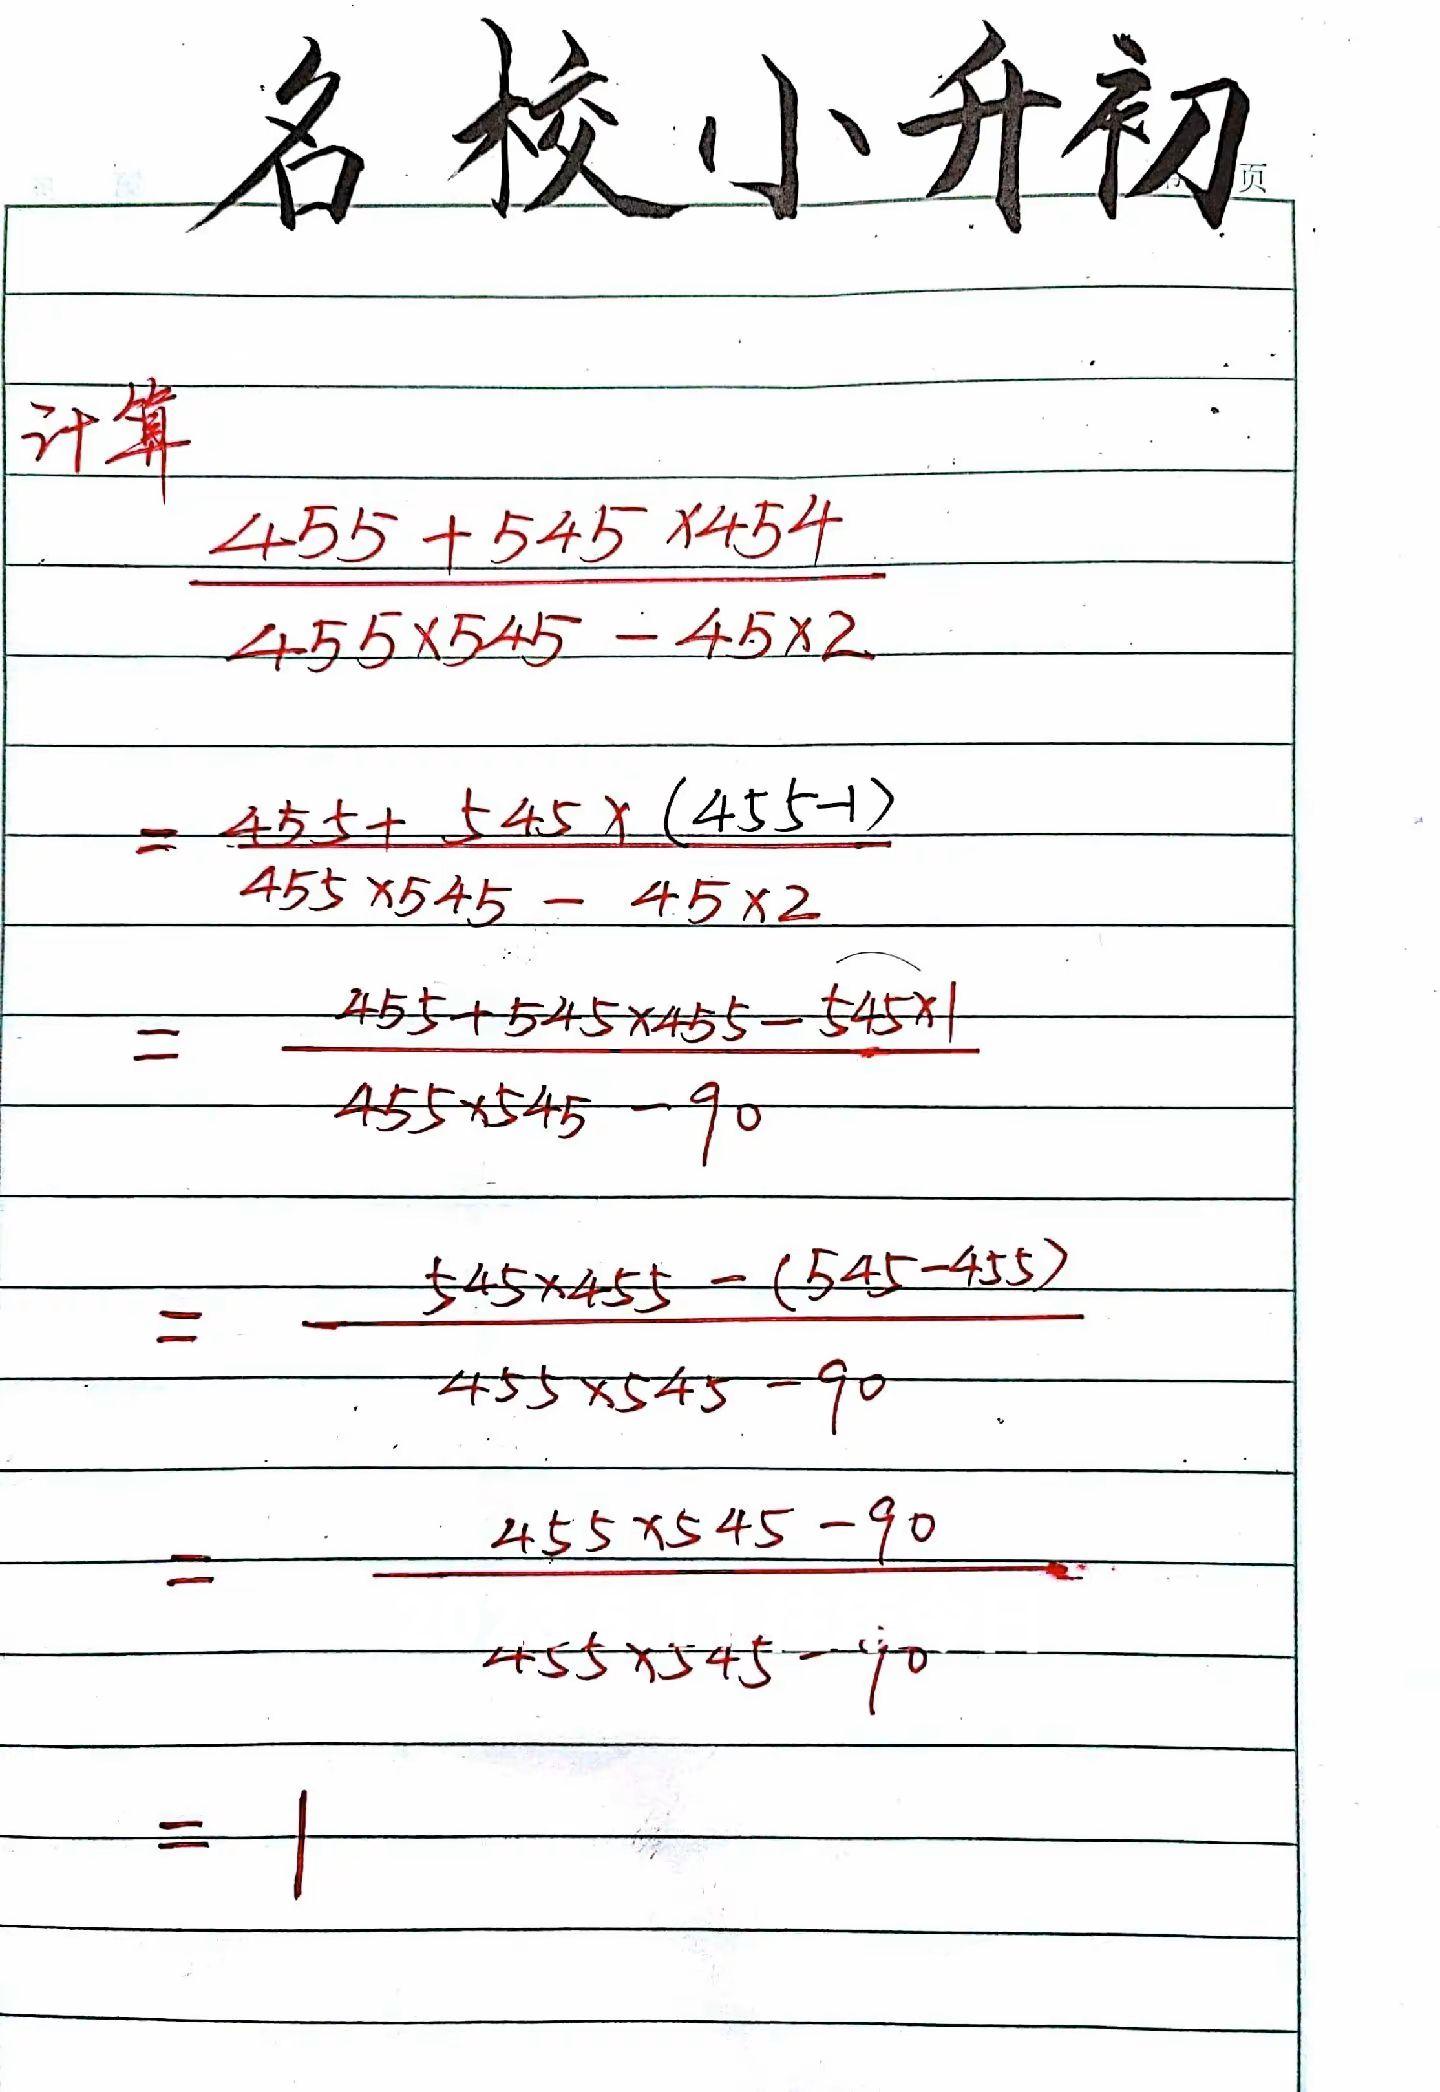 名校小升初
页
计算
455+545×454
455×545-45×2
= 455+545×(455-1)
455×545-45×2
= 455+545×455-545×1
455×545-90
= 545×455-(545-455)
455×545-90
= 455×545-90
455×545-90
= 1